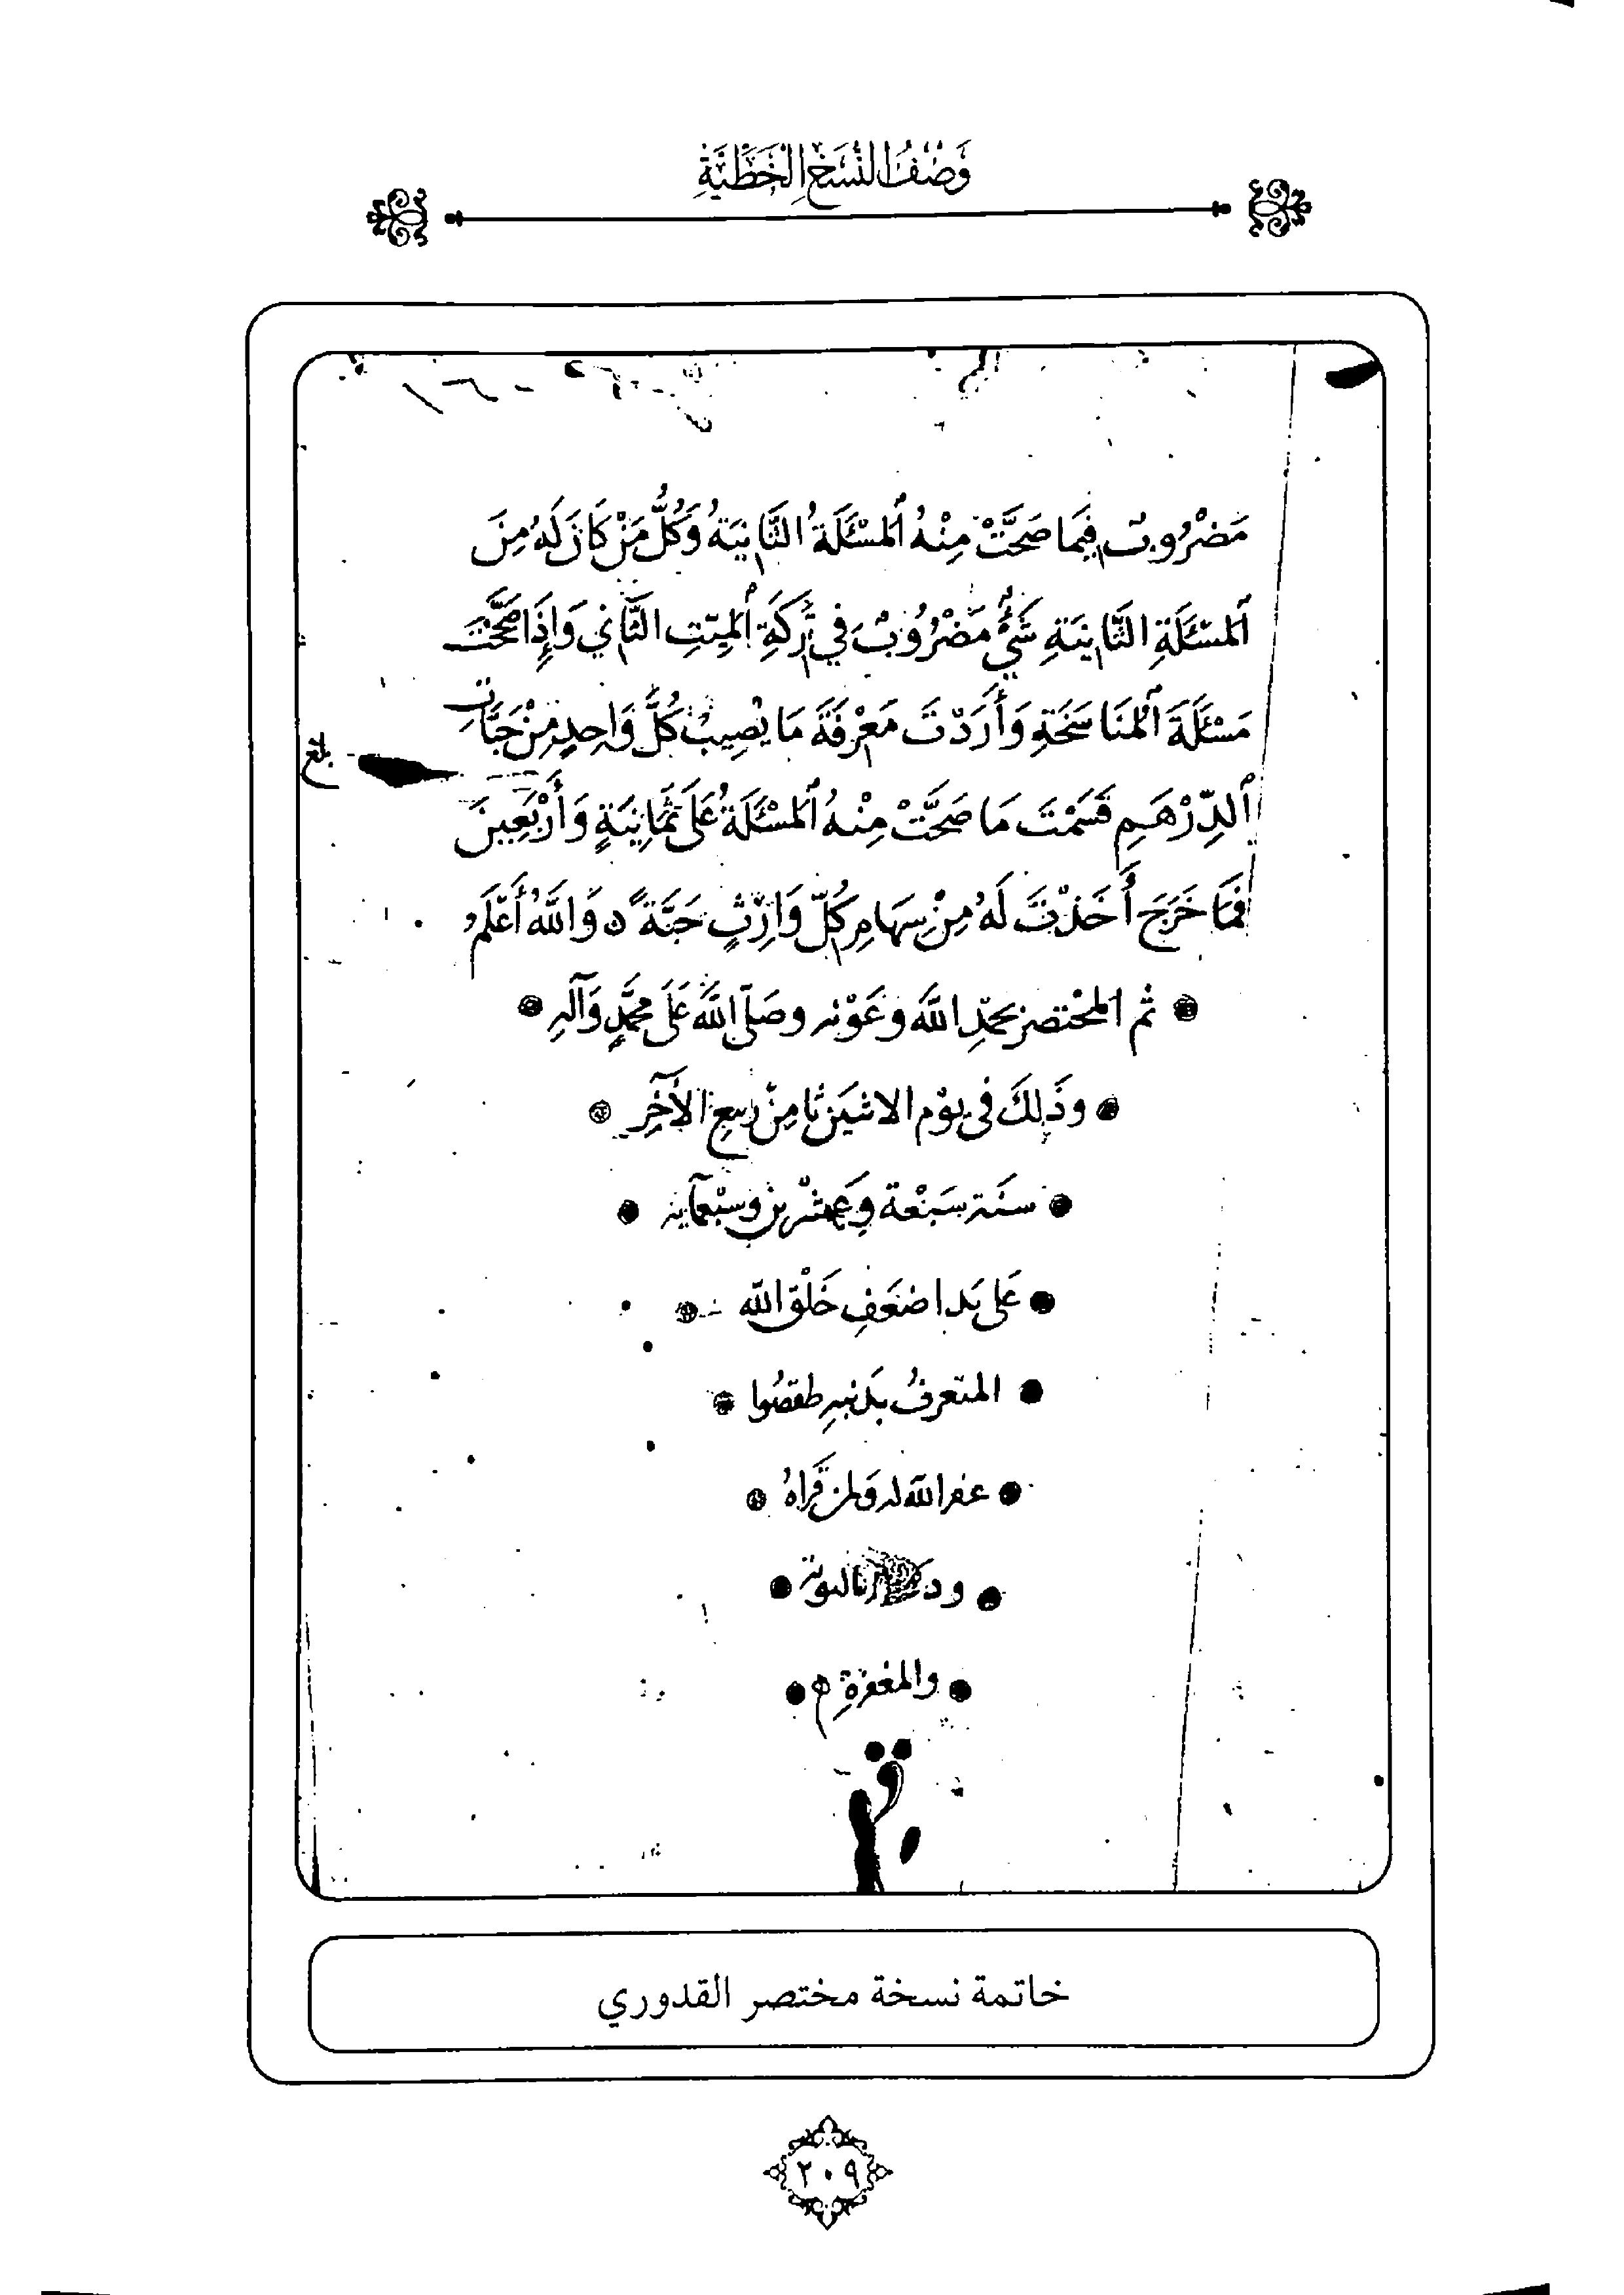 وَصْفُ النُّسَخِ الْخَطِّيَّةِ
مَضْرُوبٌ فِيمَا صَحَّتْ مِنْهُ ٱلمَسْئَلَةُ الثَّانِيَةُ وَكُلُّ مَنْ كَانَ لَهُ مِنَ
ٱلمَسْئَلَةِ الثَّانِيَةِ شَيْءٌ مَضْرُوبٌ فِي تَرِكَةِ ٱلمَيِّتِ الثَّانِي وَإِذَا صَحَّتْ
مَسْئَلَةَ ٱلمُنَاسَخَةِ وَأَرَدْتَ مَعْرِفَةَ مَا يُصِيبُ كُلَّ وَاحِدٍ مِنْ حَبَّاتِ
بلغ
ٱلدِّرْهَمِ قَسَمْتَ مَا صَحَّتْ مِنْهُ ٱلمَسْئَلَةُ عَلَى ثَمَانِيَةٍ وَأَرْبَعِينَ
فَمَا خَرَجَ أَخَذْتَ لَهُ مِنْ سِهَامِ كُلِّ وَارِثٍ حَبَّةً ه وَاللَّهُ أَعْلَمُ
تم المُخْتَصر بحَمْدِ اللَّه وعَوْنه وصَلَّى اللَّهُ عَلَى مُحَمَّدٍ وَآلِهِ
وذَلِكَ في يوْم الاثنَيْن ثامِنْ رَبيع الأَخِرِ
سنَة سَبْعة وَعِشْرين وسَبْعمايه
عَلى يَد اضعَفِ خَلْق الله
المتعرفُ بذَنبِهِ طقصُوا
غفر الله له وَلمن قَرَاهُ
بالتوبة
والمغفرةِ
خاتمة نسخة مختصر القدوري
٢٠٩